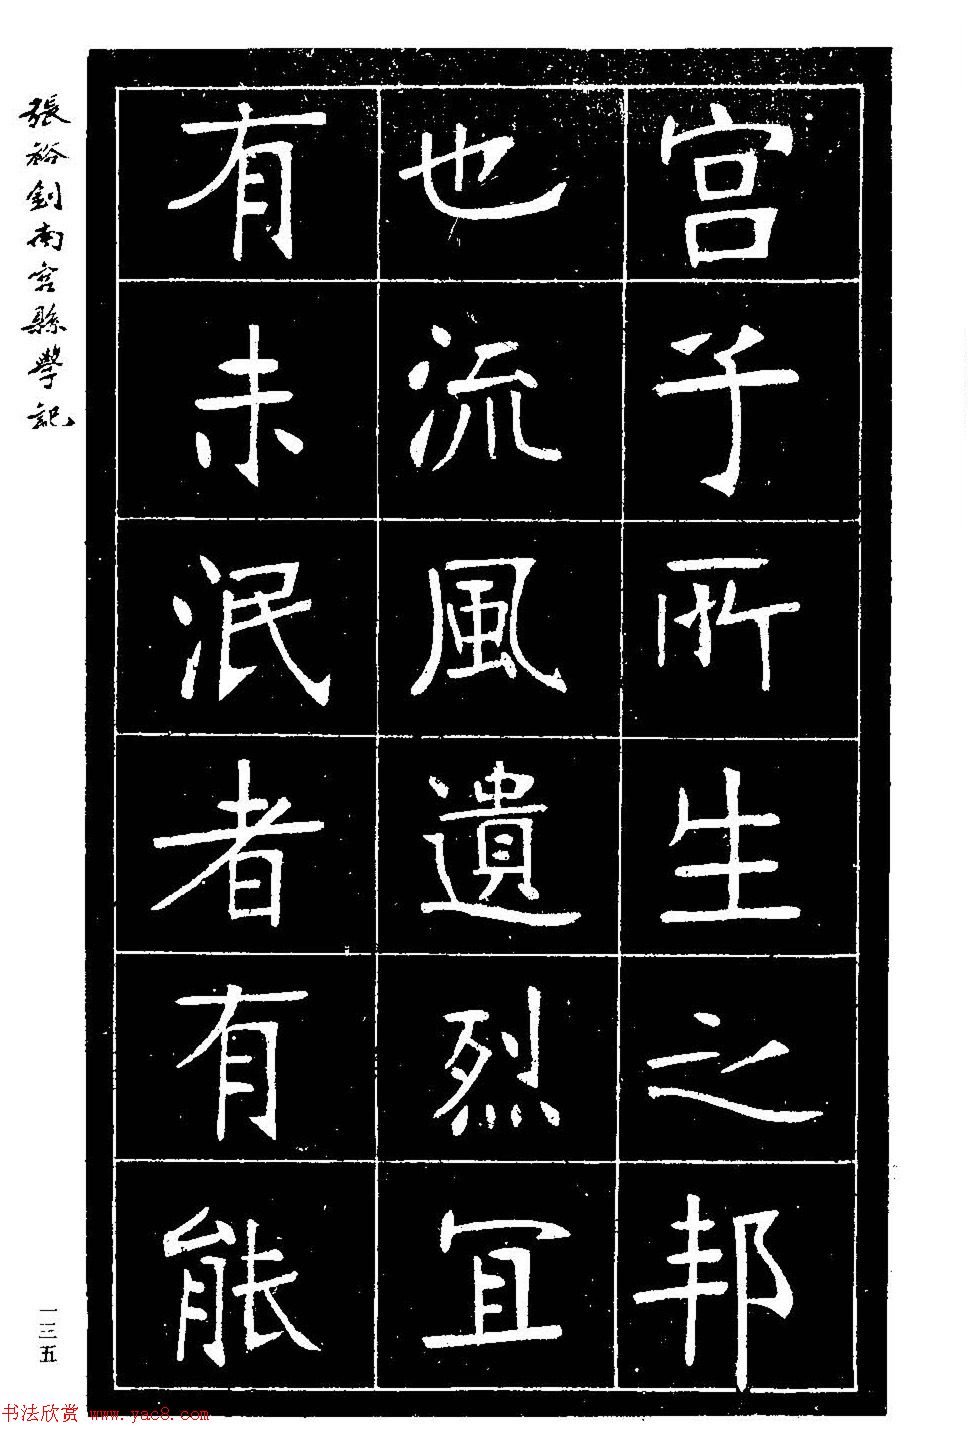 宫子所生之邦
也流風遺烈宜
有未泯者有能
張裕釗南宫縣學記
一三五
书法欣赏 www.yac8.com